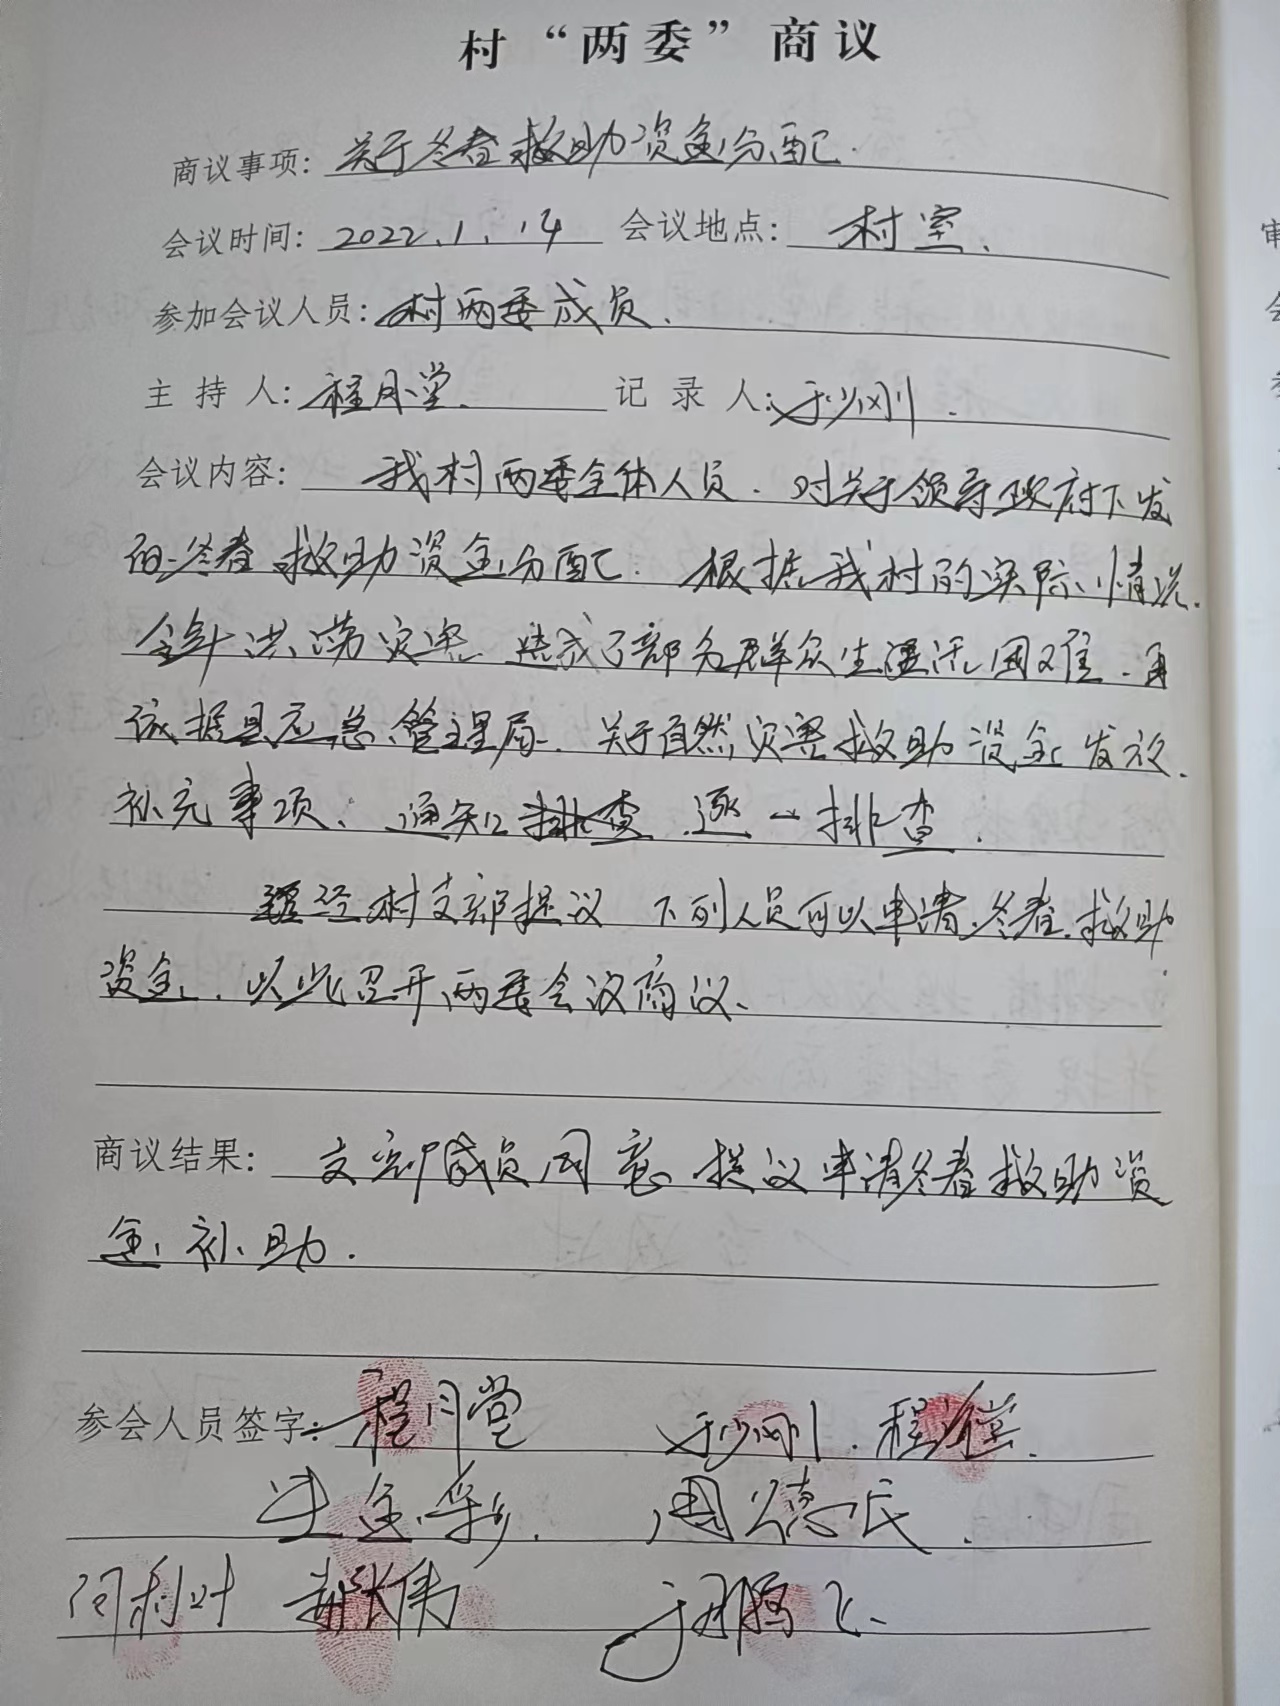 村“两委”商议
商议事项：关于冬春救助资金分配.
会议时间：2022.1.14 会议地点：村室.
参加会议人员：村两委成员.
主持人：程月堂. 记录人：于少刚.
会议内容：我村两委全体人员.对关于领导政府下发
的冬春救助资金分配.根据我村的实际情况.
全年洪涝灾害造成了部分群众生活困难.再
依据县应急管理局.关于自然灾害救助资金发放.
补充事项、通知 逐一排查.
经村支部提议 下列人员可以申请冬春救助
资金.以此召开两委会议商议.
商议结果：支部成员同意提议申请冬春救助资
金补助.
参会人员签字：程月堂 于少刚.程
周德民.
伟 于鹏飞.